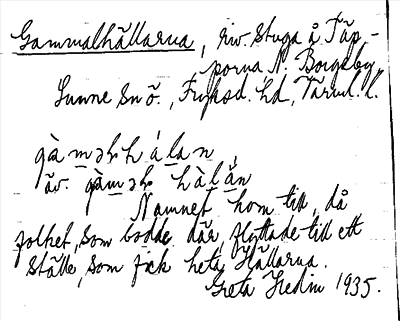 Gammalhållarna, riv. stuga å Täp-
porna N. Borgeby
Sunne sn ö., Fryksd. hd, Värml. l.
gàməlhálan
äv. gàməl hàlän
Namnet kom till, då
folket, som bodde där, flyttade till ett
ställe, som fick heta Hållarna.
Greta Hedin 1935.